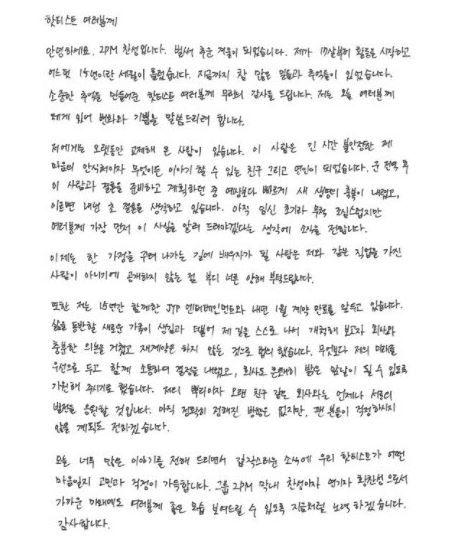 핫티스트 여러분께
안녕하세요. 2PM 찬성입니다. 벌써 추운 겨울이 되었습니다. 제가 17살부터 활동을 시작하고
어느덧 15년이란 세월이 흘렀습니다. 지금까지 참 많은 일들과 추억들이 있었습니다.
소중한 추억을 만들어준 핫티스트 여러분께 무한의 감사를 드립니다. 저는 오늘 여러분께
제게 있어 변화와 기쁨을 말씀드리려 합니다.
저에게는 오랫동안 교제해 온 사람이 있습니다. 이 사람은 긴 시간 불안정한 제
마음의 안식처이자 무엇이든 이야기 할 수 있는 친구 그리고 연인이 되었습니다. 군 전역 후
이 사람과 결혼을 준비하고 계획하던 중 예상보다 빠르게 새 생명의 축복이 내렸고,
이르면 내년 초 결혼을 생각하고 있습니다. 아직 임신 초기라 무척 조심스럽지만
여러분께 가장 먼저 이 사실을 알려 드려야겠다는 생각에 소식을 전합니다.
이제는 한 가정을 꾸려 나가는 길에 배우자가 될 사람은 저와 같은 직업을 가진
사람이 아니기에 공개하지 않는 점 부디 너른 양해 부탁드립니다.
또한 저는 15년간 함께한 JYP 엔터테인먼트와 내년 1월 계약 만료를 앞두고 있습니다.
삶을 동반할 새로운 가족이 생김과 더불어 제 길을 스스로 나서 개척해 보고자 회사와
충분한 의논을 거쳤고 재계약은 하지 않는 것으로 협의 했습니다. 무엇보다 저의 미래를
우선으로 두고 함께 소통하며 결정을 내렸고, 회사도 은혜히 밝은 앞날이 될 수 있도록
기원해 주시기로 했습니다. 저의 뿌리이자 오랜 친구 같은 회사와는 언제나 서로의
발전을 응원할 것입니다. 아직 정확히 정해진 방향은 없지만, 팬 분들이 걱정하시지
않을 계획도 전하겠습니다.
오늘 너무 많은 이야기를 전해 드리면서 갑작스러운 소식에 우리 핫티스트가 어떤
마음일지 고민과 걱정이 가득합니다. 그룹 2PM 막내 찬성이자 연기자 황찬성으로서
가까운 미래에도 여러분께 좋은 모습 보여드릴 수 있도록 지금처럼 노력하겠습니다.
감사합니다.